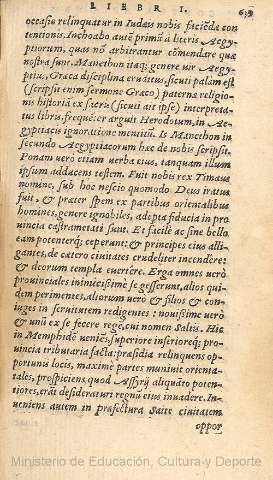 LIBRI I. 639
occasio relinquatur in Iudæis nobis faciẽda con
tentionis. Inchoabo autẽ primũ à literis Aegy-
ptiorum, quas nõ arbitrantur cõmendare quæ
nostra sunt. Manethon itaq; genere vir Aegy-
ptiũ, Græca disciplina eruditus, sicuti palàm est
(scripsit enim sermone Græco) paternæ religio-
nis historiã ex sacris (sicuti ait ipse) interpreta-
tus libris, frequẽter arguit Herodotum, in Ae-
gyptiacis ignoratione mentitũ. Is Manethon in
secundo Aegyptiacorum hæc de nobis scripsit.
Ponam verò etiam verba eius, tanquam illum
ipsum addacens testem. Fuit nobis rex Timæus
nomine, sub hoc nescio quomodo Deus iratus
fuit, & præter spem ex partibus orientalibus
homines genere ignobiles, adepta fiducia in pro
uincia castrametati sunt. Et facilè ac sine bello
eam potenterq; ceperunt: & principes eius alli-
gantes, de cætero ciuitates crudeliter incendêre:
& deorum templa euertêre. Erga omnes verò
prouinciales inimicissimè se gesserunt, alios qui-
dem perimentes, aliorum verò & filios & con-
iuges in seruitutem redigentes: nouissimè verò
& unũ ex se fecere regẽ, cui nomen Saltis. Hic
in Memphidẽ veniẽs, superiore inferioreq; pro-
uincia tributaria facta: præsidia relinquens op-
portunis locis, maximè partes muniuit orienta-
tales, prospiciens quod Assyrij aliquãto poten-
tiores, erãt desideraturi regnũ eius inuadere. In-
ueniens autem in præfectura Saite ciuitatem
oppor
Ministerio de Educación, Cultura y Deporte